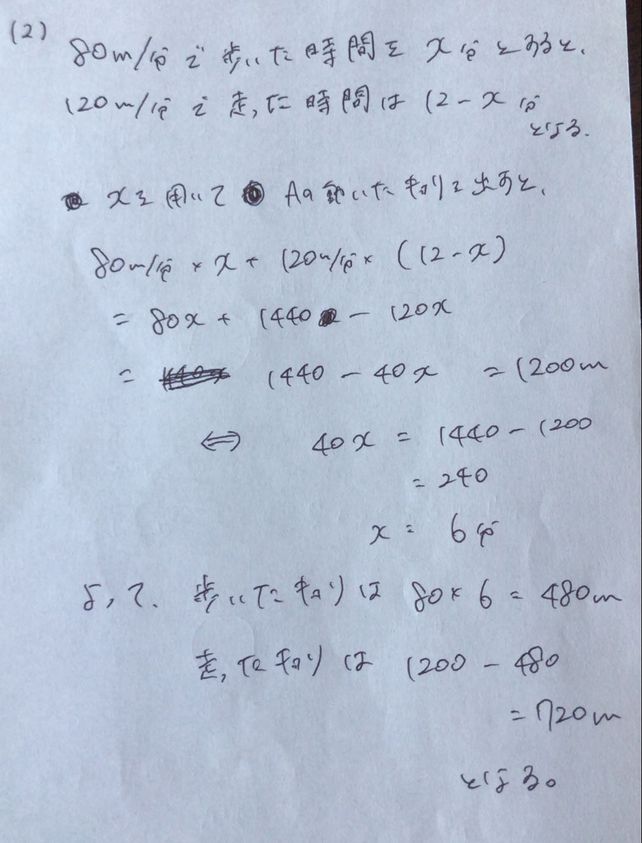 (2) 80m/分で歩いた時間をx分とすると、
120m/分で走った時間は12-x分
となる.
xを用いて Aの動いたキョリを出すと、
80m/分×x+120m/分×(12-x)
= 80x + 1440 - 120x
= 1440 - 40x = 1200m
⇔ 40x = 1440 - 1200
= 240
x = 6分
よって、歩いたキョリは 80×6 = 480m
走ったキョリは 1200 - 480
= 720m
となる。